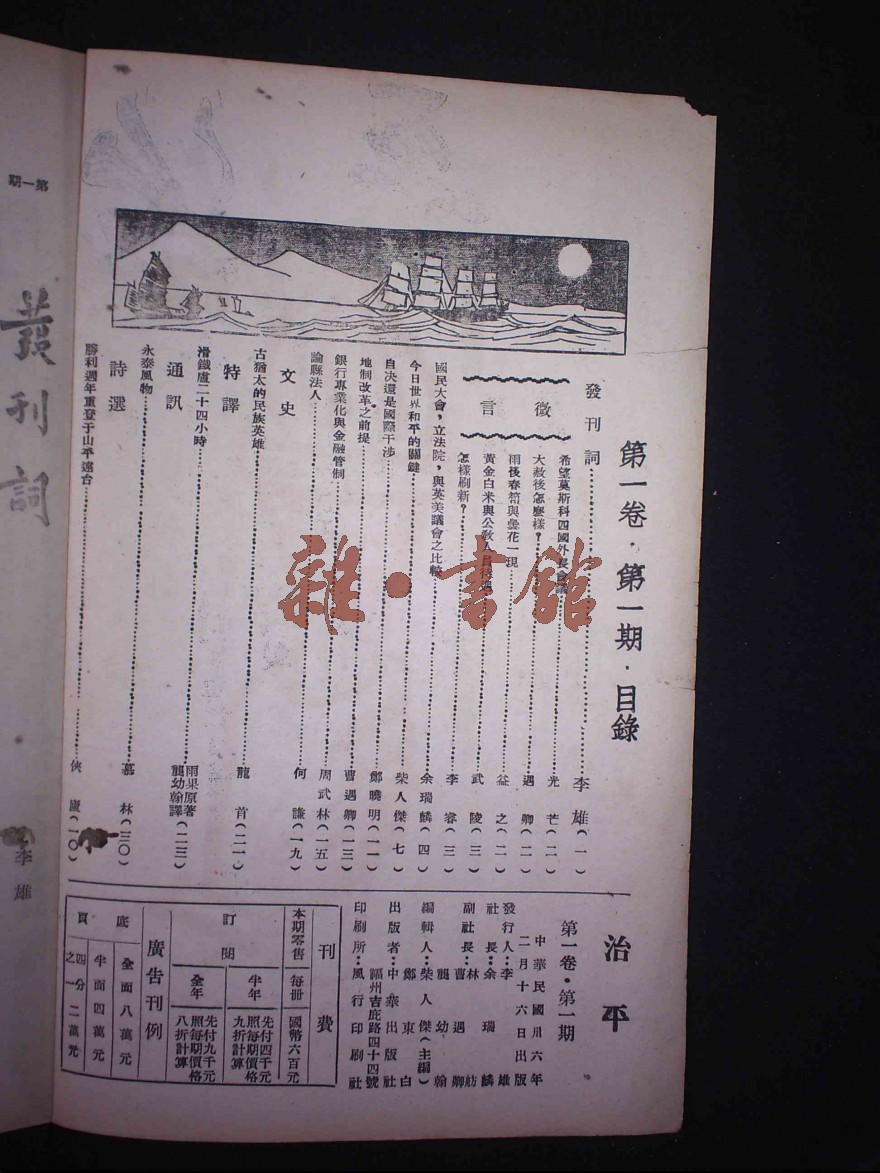 第一卷·第一期·目錄
發刊詞……李雄(一)
微言
希望莫斯科四國外長會議……光芒(二)
大赦後怎麼樣?……遇卿(二)
雨後春筍與曇花一現……益之(二)
黃金白米與公教人員待遇……武陵(三)
怎樣刷新?……李睿(三)
國民大會,立法院,與英美議會之比較……余瑞麟(四)
今日世界和平的關鍵……柴人傑(七)
自决還是國際干涉……鄭曉明(一一)
地制改革之前提……曹遇卿(一三)
銀行專業化與金融管制……周武林(一五)
論縣法人……何謙(一九)
文史
古猶太的民族英雄……龍首(二一)
特譯
滑鐵盧二十四小時……雨果原著 龔幼翰譯(二三)
通訊
永泰風物……慕林(三〇)
詩選
勝利週年重登于山平遠台……俠廬(一〇)
治平
第一卷·第一期
中華民國卅六年
二月十六日出版
發行人:李雄
社長:余瑞麟
副社長:林舫
曹遇卿
龔幼翰
編輯人:柴人傑(主編)
鄭東白
出版者:中華出版社
福州吉庇路四十四號
印刷所:風行印刷社
刊費
本期零售 每冊 國幣六百元
訂閱
半年 先付四千元 照每期價格 九折計算
全年 先付九千元 照每期價格 八折計算
廣告刊例
底頁
全面八萬元
半面四萬元
四分之一 二萬元
第一期
發刊詞
李雄
雜·書館